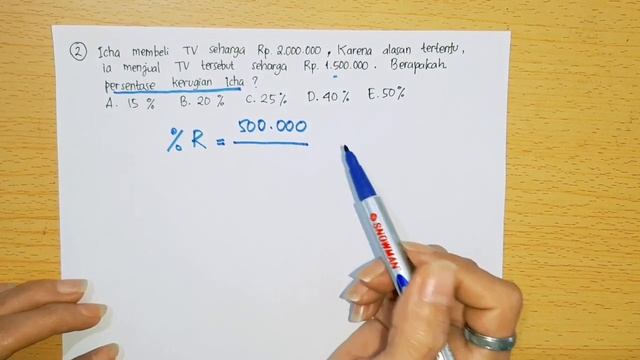 ② Icha membeli TV seharga Rp. 2.000.000, Karena alasan tertentu,
ia menjual TV tersebut seharga Rp. 1.500.000. Berapakah
persentase kerugian icha ?
A. 15 % B. 20 % C. 25 % D. 40 % E. 50 %
% R = 500.000
SNOWMAN